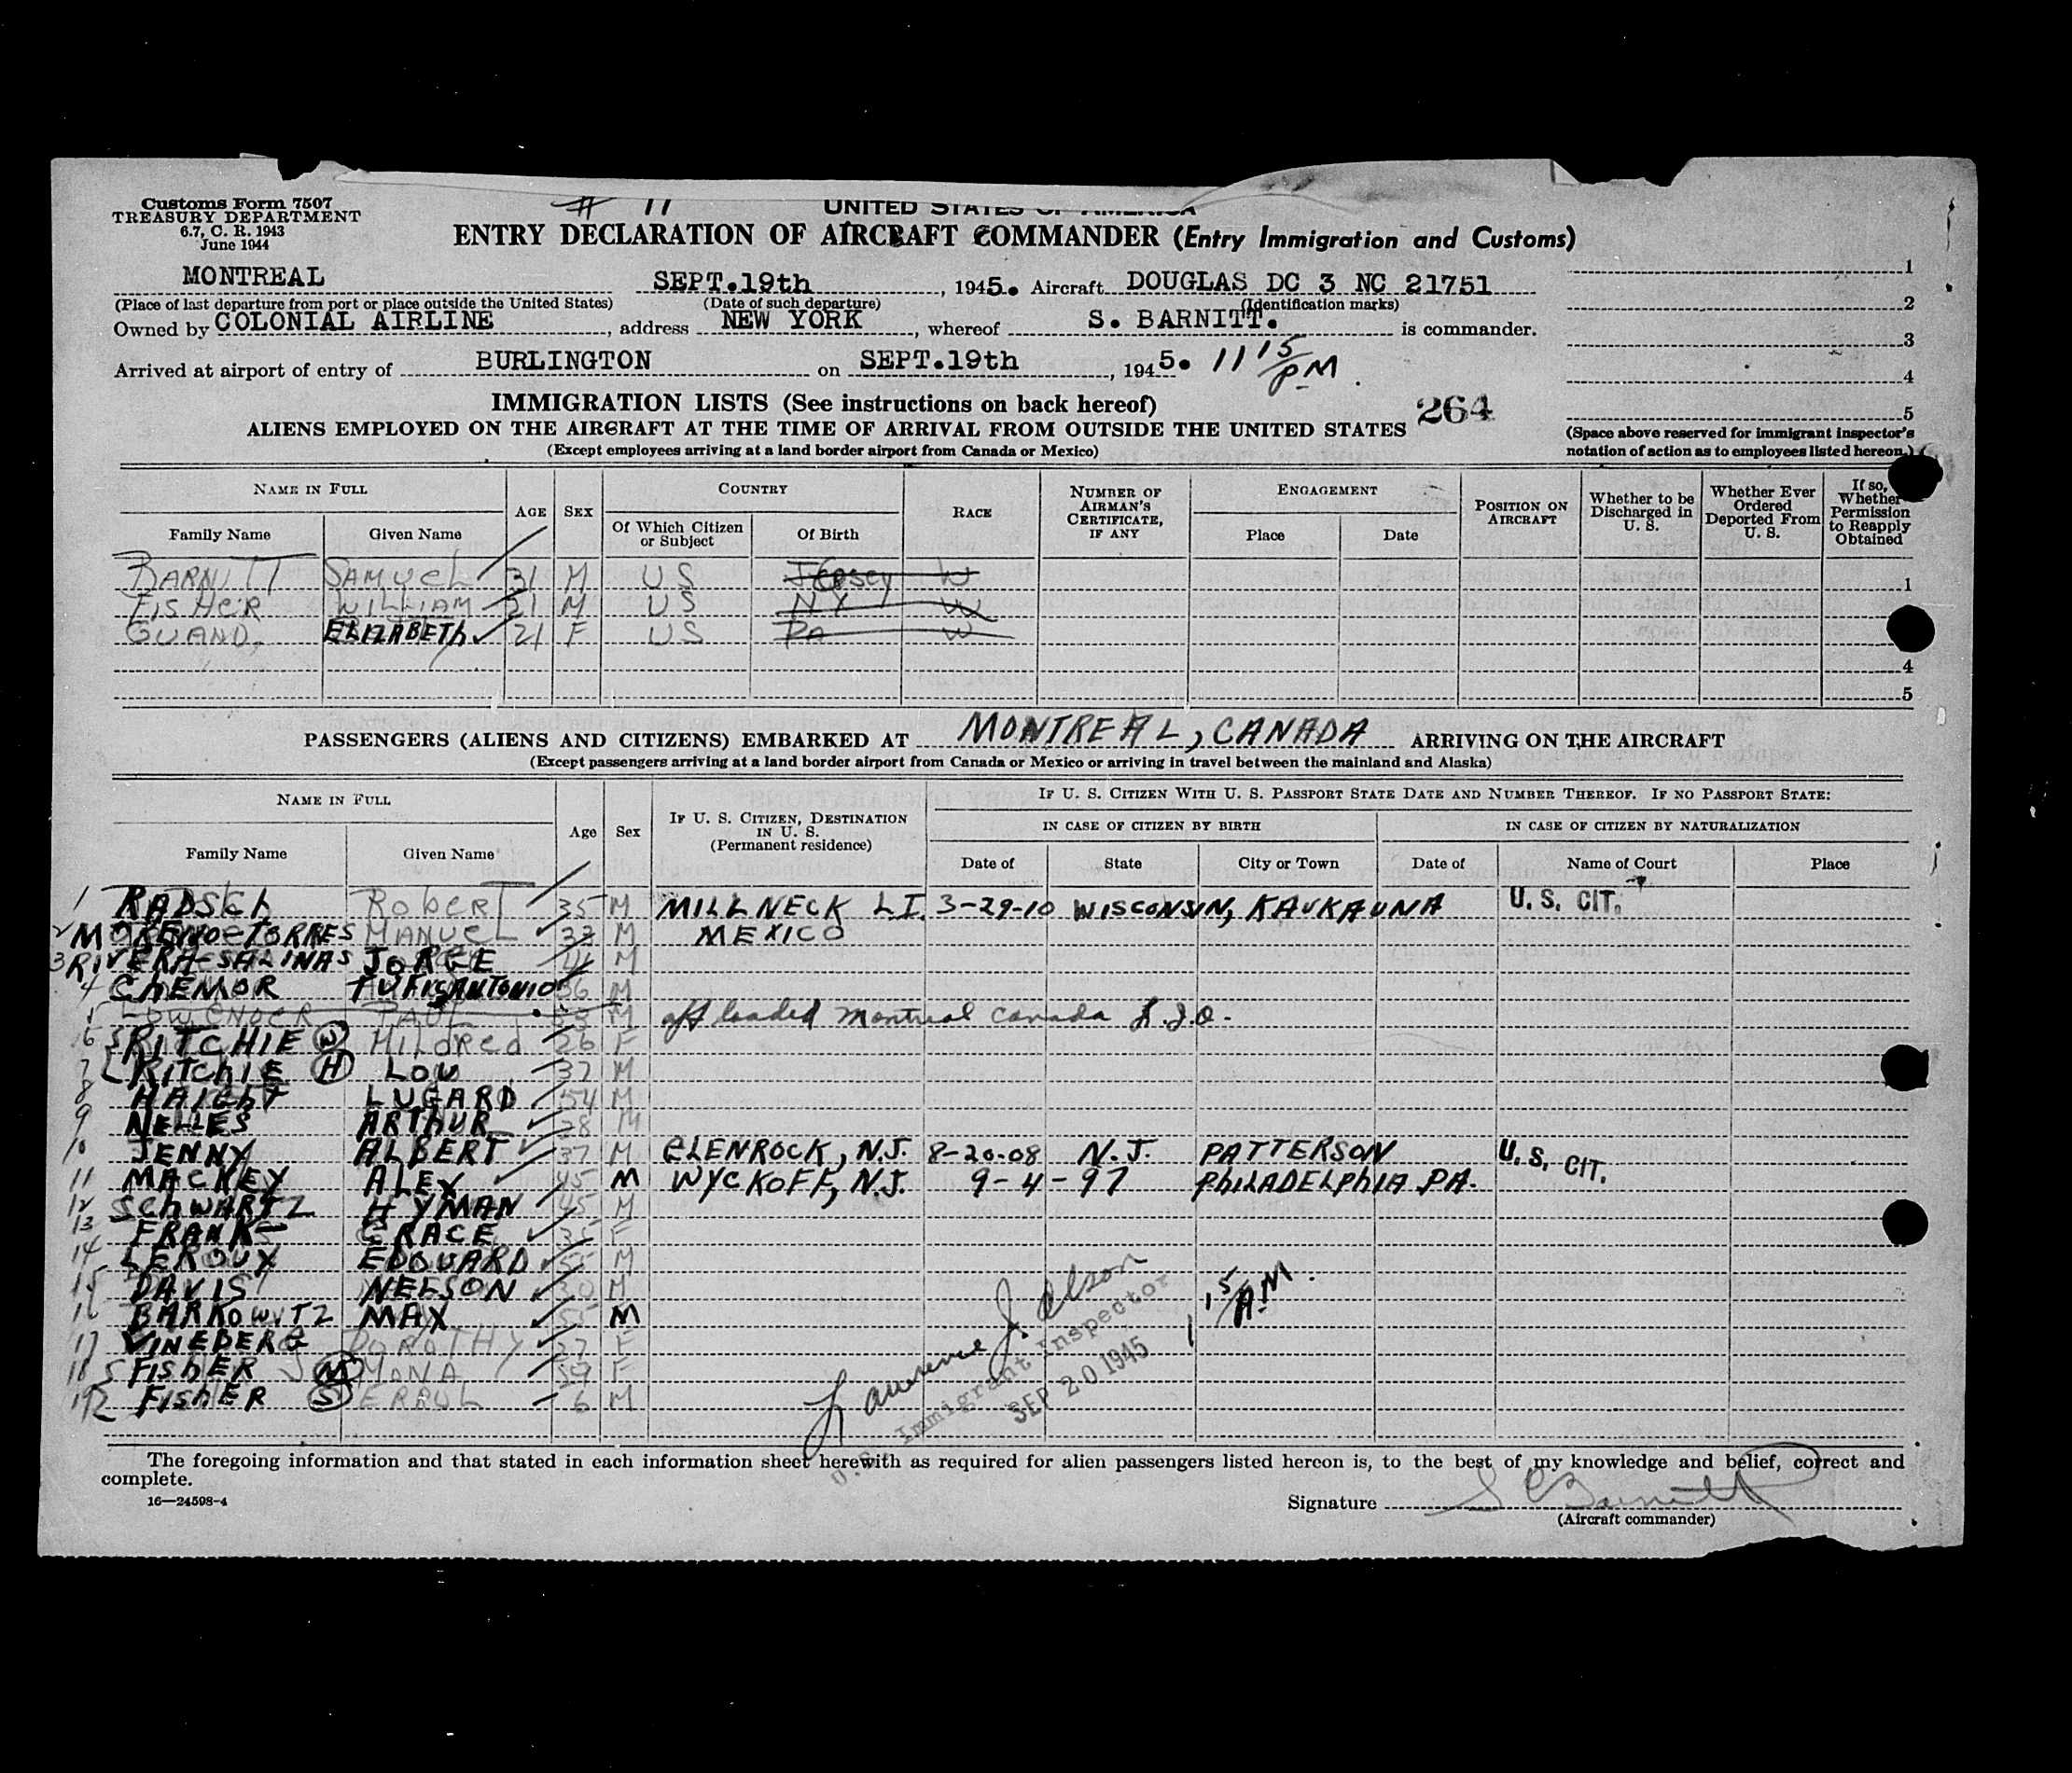 Customs Form 7507
TREASURY DEPARTMENT
6.7, C. R. 1943
June 1944
# 11
UNITED STATES OF AMERICA
ENTRY DECLARATION OF AIRCRAFT COMMANDER (Entry Immigration and Customs)
MONTREAL SEPT.19th, 1945. Aircraft DOUGLAS DC 3 NC 21751
(Place of last departure from port or place outside the United States) (Date of such departure) (Identification marks)
Owned by COLONIAL AIRLINE, address NEW YORK, whereof S. BARNITT. is commander.
Arrived at airport of entry of BURLINGTON on SEPT.19th, 1945. 11 15/PM
1
2
3
4
5
(Space above reserved for immigrant inspector's
notation of action as to employees listed hereon.)
IMMIGRATION LISTS (See instructions on back hereof)
264
ALIENS EMPLOYED ON THE AIRCRAFT AT THE TIME OF ARRIVAL FROM OUTSIDE THE UNITED STATES
(Except employees arriving at a land border airport from Canada or Mexico)
NAME IN FULL AGE SEX COUNTRY RACE NUMBER OF AIRMAN'S CERTIFICATE, IF ANY ENGAGEMENT POSITION ON AIRCRAFT Whether to be Discharged in U. S. Whether Ever Ordered Deported From U. S. If so, Whether Permission to Reapply Obtained
Family Name Given Name Of Which Citizen or Subject Of Birth Place Date
BARNITT SAMUEL 31 M US Jersey W 1
FISHER WILLIAM 21 M US NY W
GUAND, ELIZABETH 21 F US PA W
4
5
PASSENGERS (ALIENS AND CITIZENS) EMBARKED AT MONTREAL, CANADA ARRIVING ON THE AIRCRAFT
(Except passengers arriving at a land border airport from Canada or Mexico or arriving in travel between the mainland and Alaska)
NAME IN FULL Age Sex IF U. S. CITIZEN, DESTINATION IN U. S. (Permanent residence) IF U. S. CITIZEN WITH U. S. PASSPORT STATE DATE AND NUMBER THEREOF. IF NO PASSPORT STATE:
IN CASE OF CITIZEN BY BIRTH IN CASE OF CITIZEN BY NATURALIZATION
Family Name Given Name Date of State City or Town Date of Name of Court Place
1 RADSCH ROBERT 35 M MILLNECK L I. 3-29-10 WISCONSIN, KAUKAUNA U. S. CIT.
2 MORENO-TORRES MANUEL 33 M MEXICO
3 RIVERA-SALINAS JORGE 41 M
4 CHEMOR TUFIS ANTONIO 36 M
LOWENDER PAUL M off loaded Montreal Canada L.J.O.
6 RITCHIE W MILDRED 26 F
7 RITCHIE H LOU 37 M
8 HAIGHT LUGARD 54 M
9 NELLES ARTHUR 28 M
10 JENNY ALBERT 37 M GLENROCK, N.J. 8-20-08 N.J. PATTERSON U. S. CIT.
11 MACKEY ALEX 45 M WYCKOFF, N.J. 9-4-97 PHILADELPHIA PA.
12 SCHWARTZ HYMAN 45 M
13 FRANKS GRACE 35 F
14 LEROUX EDOUARD 55 M
15 DAVIS NELSON 30 M
16 BARKOWITZ MAX 55 M
17 VINEBERG DOROTHY 37 F
18 FISHER M MONA 39 F
19 FISHER S ERROL 6 M
Lawrence J. Olson
U.S. Immigrant Inspector
SEP 20 1945
1 15/AM.
The foregoing information and that stated in each information sheet herewith as required for alien passengers listed hereon is, to the best of my knowledge and belief, correct and
complete.
16—24598-4
Signature S Barnitt
(Aircraft commander)